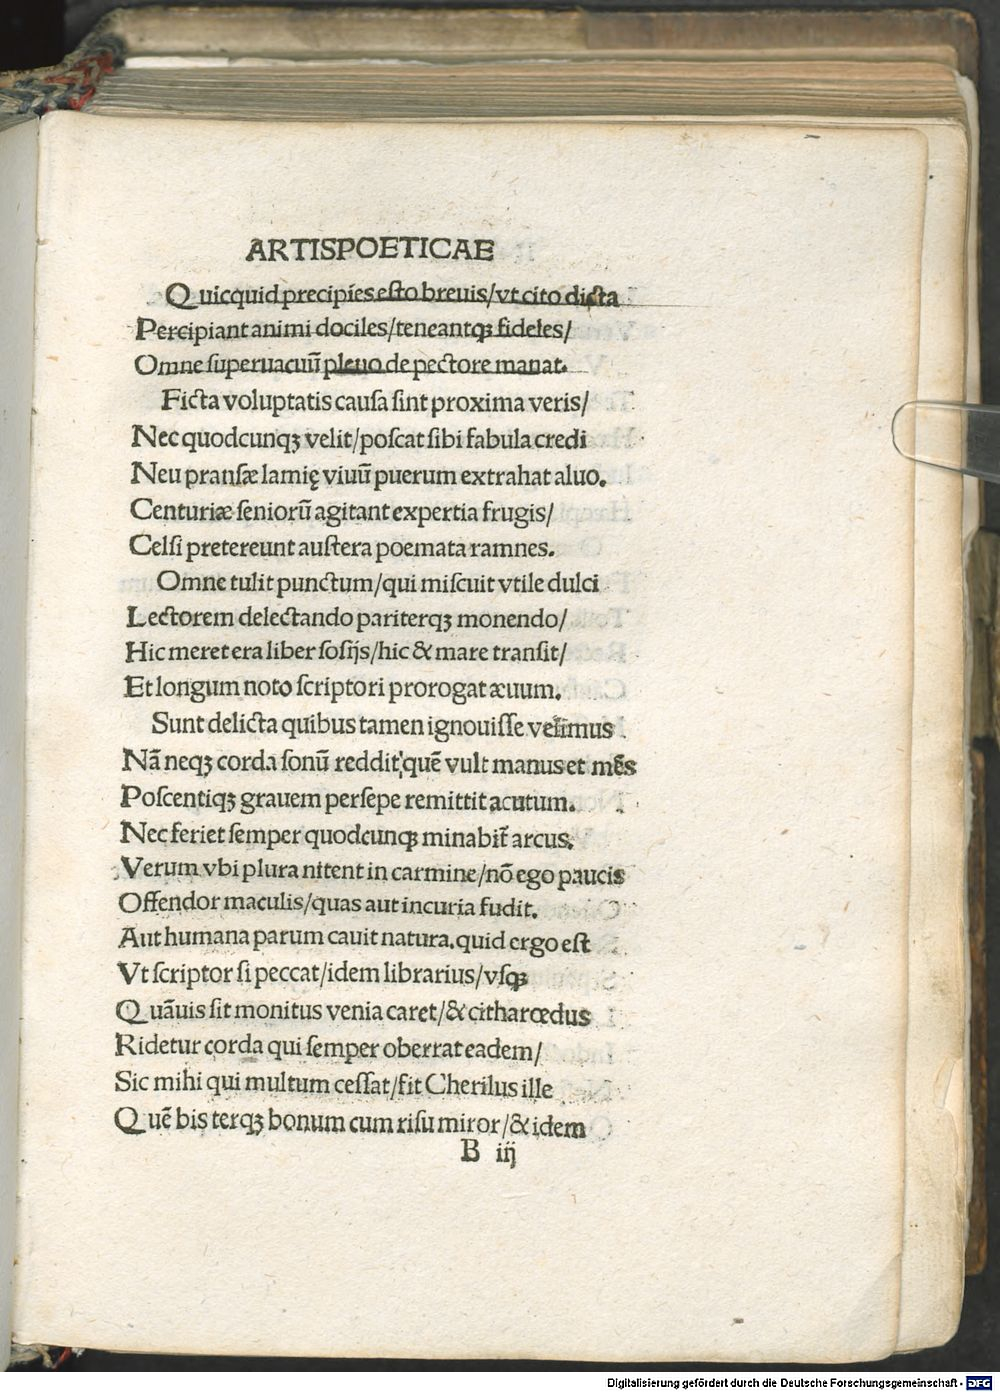 ARTISPOETICAE
Quicquid precipies eſto breuis/vt cito dicta
Percipiant animi dociles/teneantqꝫ fideles/
Omne ſuperuacuū pleuo de pectore manat.
Ficta voluptatis cauſa ſint proxima veris/
Nec quodcunqꝫ velit/poſcat ſibi fabula credi
Neu pranſæ lamię viuū puerum extrahat aluo.
Centuriæ ſeniorū agitant expertia frugis/
Celſi pretereunt auſtera poemata ramnes.
Omne tulit punctum/qui miſcuit vtile dulci
Lectorem delectando pariterqꝫ monendo/
Hic meret era liber ſoſijs/hic & mare tranſit/
Et longum noto ſcriptori prorogat æuum.
Sunt delicta quibus tamen ignouiſſe velimus
Nā neqꝫ corda ſonū reddit quē vult manus et mēs
Poſcentiqꝫ grauem perſepe remittit acutum.
Nec feriet ſemper quodcunqꝫ minabit̄ arcus.
Verum vbi plura nitent in carmine/nō ego paucis
Offendor maculis/quas aut incuria fudit.
Aut humana parum cauit natura.quid ergo eſt
Vt ſcriptor ſi peccat/idem librarius/vſqꝫ
Quāuis ſit monitus venia caret/& citharœdus
Ridetur corda qui ſemper oberrat eadem/
Sic mihi qui multum ceſſat/fit Cherilus ille
Quē bis terqꝫ bonum cum riſu miror/& idem
B iij
Digitalisierung gefördert durch die Deutsche Forschungsgemeinschaft - DFG